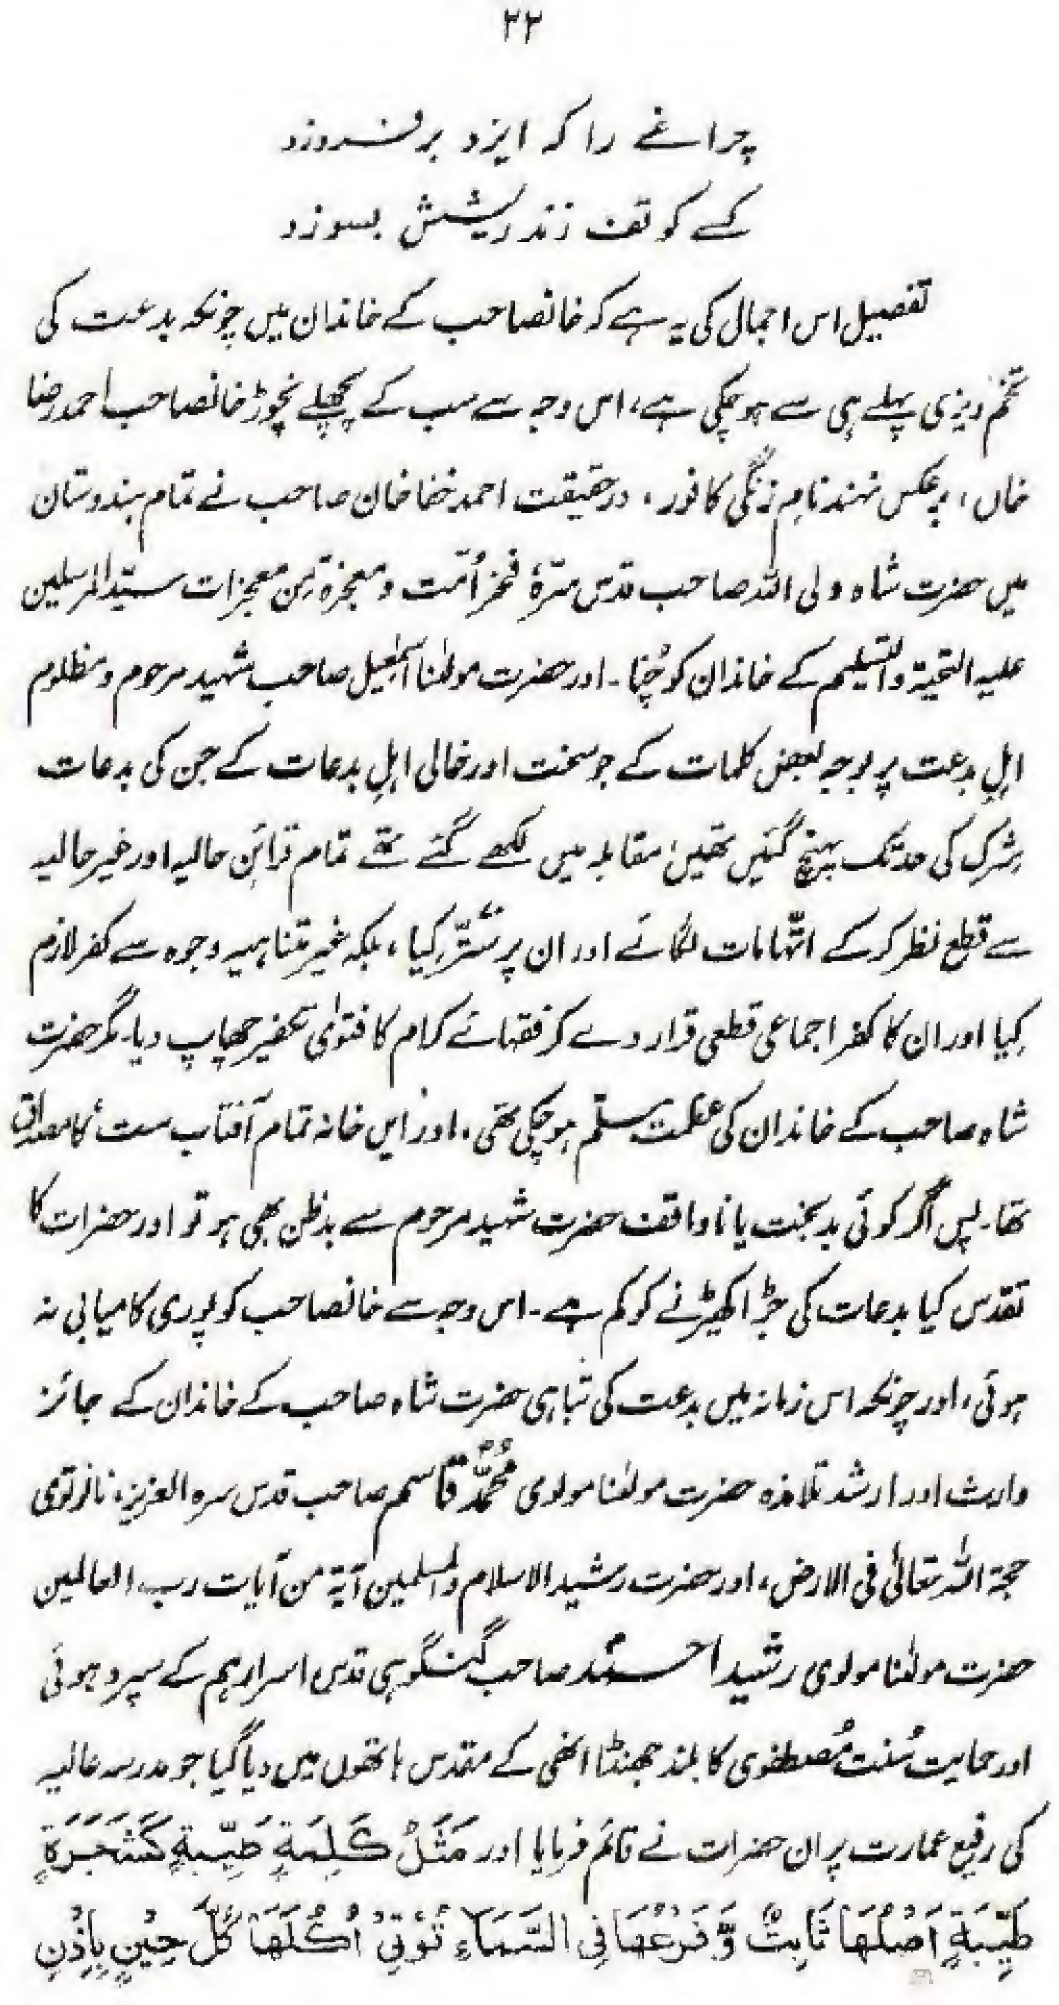 ۲۲
چراغے را کہ ایزد بر فروزد
کسے کو تف زند ریشش بسوزد
تفصیل اس اجمال کی یہ ہے کہ خانصاحب کے خاندان میں چونکہ بدعت کی
تخم ریزی پہلے ہی سے ہو چکی ہے، اس وجہ سے سب کے پچھلے نچوڑ خانصاحب احمد رضا
خاں، برعکس نہند نام زنگی کافور، درحقیقت احمد خفا خان صاحب نے تمام ہندوستان
میں حضرت شاہ ولی اللہ صاحب قدس سرّہٗ فخر اُمّت و معجزۃ مِن معجزات سیّد المرسلین
علیہ التحیۃ والتسلیم کے خاندان کو چُنا۔ اور حضرت مولٰنا اسمٰعیل صاحب شہید مرحوم و مظلوم
اہلِ بدعت پر بوجہ بعض کلمات کے جو سخت اور غالی اہلِ بدعات کے جن کی بدعات
شرک کی حد تک پہنچ گئیں تھیں مقابلہ میں لکھے گئے تھے تمام قرائن حالیہ اور غیر حالیہ
سے قطع نظر کر کے اتّہامات لگائے اور ان پر ستّر کیا، بلکہ غیر متناہیہ وجوہ سے کفر لازم
کیا اور ان کا کفر اجماعی قطعی قرار دے کر فقہائے کرام کا فتویٰ تکفیر چھاپ دیا۔ مگر حضرت
شاہ صاحب کے خاندان کی عظمت مسلّم ہو چکی تھی، اور ایں خانہ تمام آفتاب ست کا مصداق
تھا۔ پس اگر کوئی بدبخت یا ناواقف حضرت شہید مرحوم سے بدظن بھی ہو تو اور حضرات کا
تقدس کیا بدعات کی جڑ اکھیڑنے کو کم ہے۔ اس وجہ سے خانصاحب کو پوری کامیابی نہ
ہوئی، اور چونکہ اس زمانہ میں بدعت کی تباہی حضرت شاہ صاحب کے خاندان کے جائز
وارث اور ارشد تلامذہ حضرت مولٰنا مولوی مُحمَّد قاسم صاحب قدس سرہ العزیز، نانوتوی
حجۃ اللہ تعالیٰ فی الارض، اور حضرت رشید الاسلام والمسلمین آیۃ من آیات رب العالمین
حضرت مولٰنا مولوی رشید احمد صاحب گنگوہی قدس اسرارہم کے سپرد ہوئی
اور حمایت سُنت مُصطفوی کا بلند جھنڈا انھی کے مقدس ہاتھوں میں دیا گیا جو مدرسہ عالیہ
کی رفیع عمارت پر ان حضرات نے قائم فرمایا اور مَثَلُ کَلِمَةٍ طَیِّبَةٍ کَشَجَرَةٍ
طَیِّبَةٍ اَصْلُهَا ثَابِتٌ وَّ فَرْعُهَا فِی السَّمَاءِ تُؤْتِیْ اُکُلَهَا کُلَّ حِیْنٍ بِاِذْنِ